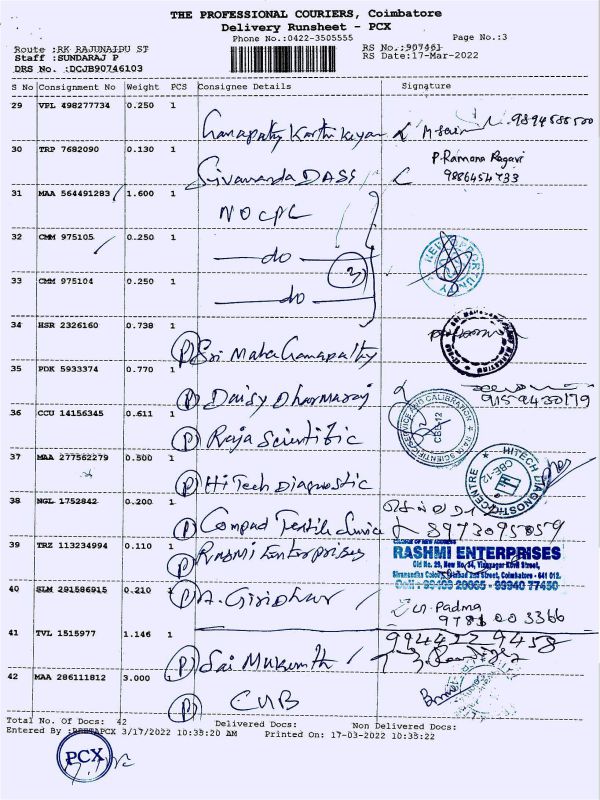 THE PROFESSIONAL COURIERS, Coimbatore
Delivery Runsheet - PCX
Phone No.:0422-3505555 Page No.:3
Route :RK RAJUNAIDU ST RS No.:907461
Staff :SUNDARAJ P RS Date:17-Mar-2022
DRS No. :DCJB90746103
S No Consignment No Weight PCS Consignee Details Signature
29 VPL 498277734 0.250 1
Ganapathy Karthikeyan
30 TRP 7682090 0.130 1
P. Ramana Ragavi
Sivananda DASS
31 MAA 564491283 1.600 1
NO CPC
32 CMM 975105 0.250 1
do
3
33 CMM 975104 0.250 1
do
34 HSR 2326160 0.738 1
(P) Sri Maha Ganapathy
35 PDK 5933374 0.770 1
(P) Daisy Dharmaraj 9159430179
36 CCU 14156345 0.611 1
(P) Raja Scientific
37 MAA 277562279 0.500 1
(P) HiTech Diagnostic
HITECH DIAGNOSTIC CENTRE
CBE-12
38 NGL 1752842 0.200 1
(P) Textile 8973095059
39 TRZ 113234994 0.110 1
(P) Rashmi Enterprises
RASHMI ENTERPRISES
40 SLM 291586915 0.210 1
(P) A. Giridhar
Padma
41 TVL 1515977 1.146 1
9944229458
(P) Sai Mukunth
42 MAA 286111812 3.000 1
(P) CUB
Total No. Of Docs: 42 Delivered Docs: Non Delivered Docs:
3/17/2022 10:35:20 AM Printed On: 17-03-2022 10:35:22
PCX